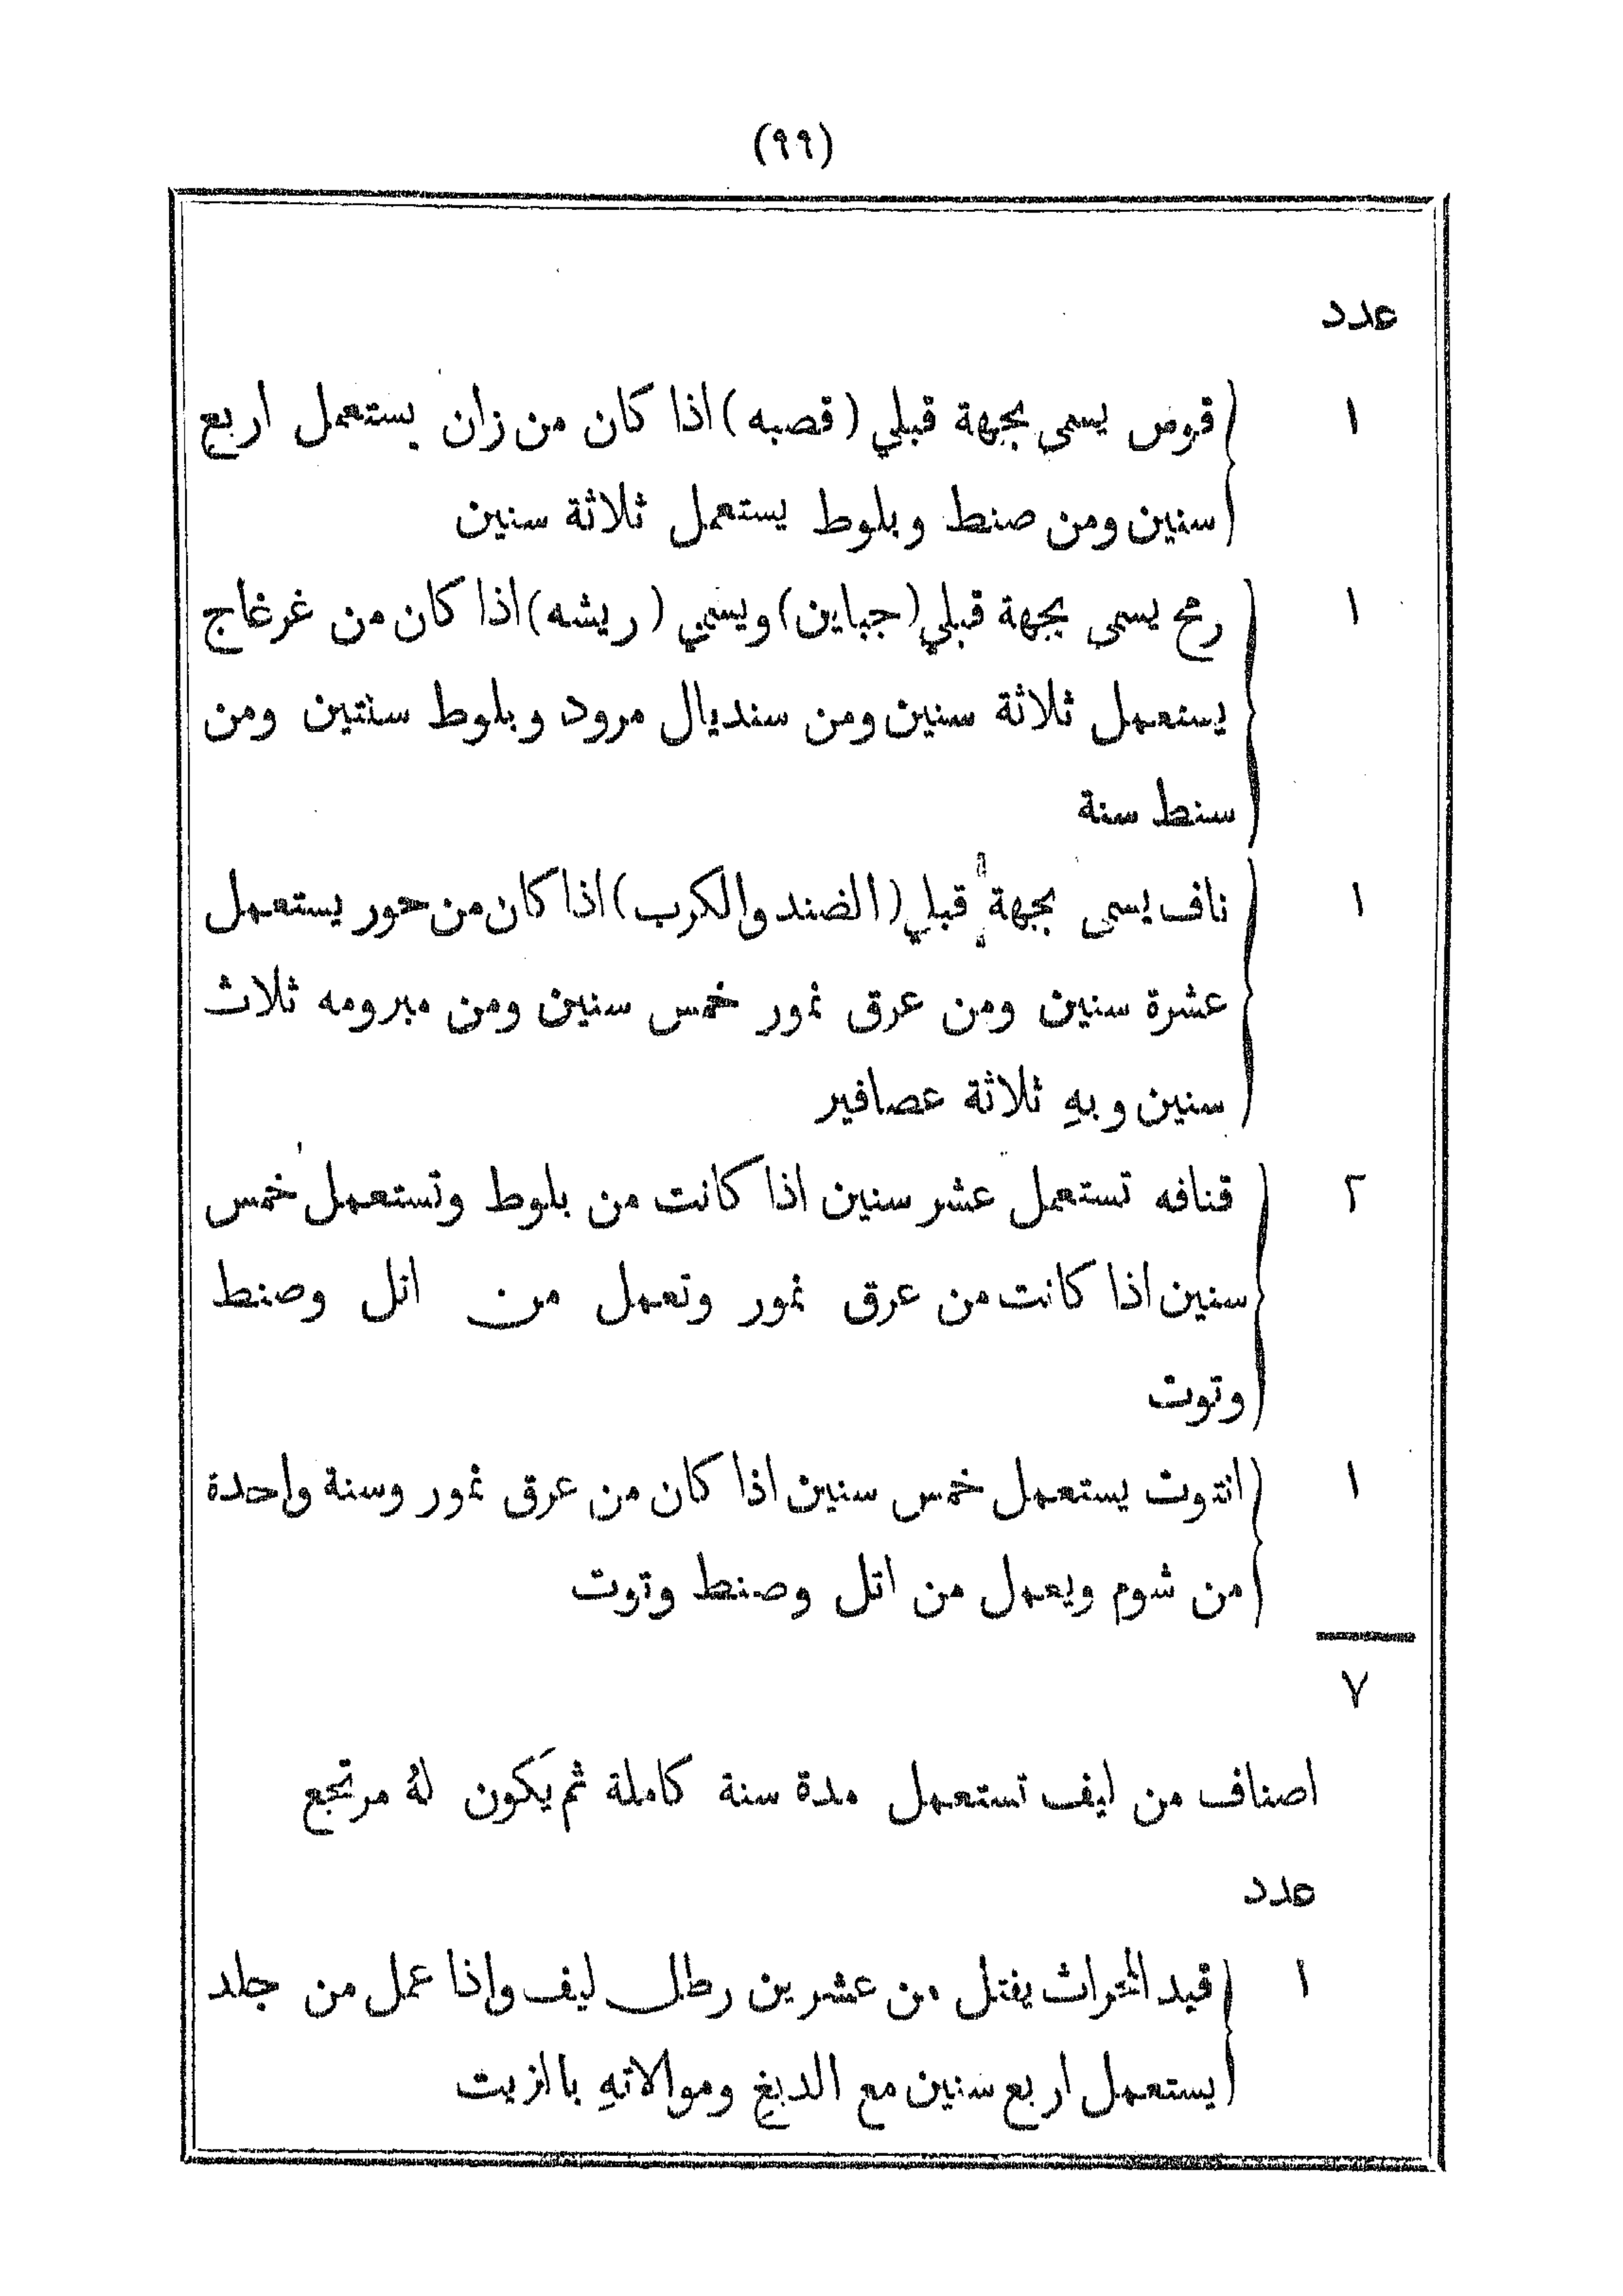 (٩٩)
عدد
١ قوص يسمى بجهة قبلي (قصبه) اذا كان من زان يستعمل اربع
سنين ومن صنط وبلوط يستعمل ثلاثة سنين
١ رمح يسمى بجهة قبلي (جباين) ويسمي (ريشه) اذا كان من غرغاج
يستعمل ثلاثة سنين ومن سنديال مرود وبلوط سنتين ومن
سنط سنة
١ ناف يسمى بجهة قبلي (الضند والكرب) اذا كان من حور يستعمل
عشرة سنين ومن عرق نمور خمس سنين ومن مبرومه ثلاث
سنين وبهِ ثلاثة عصافير
٢ قنافه تستعمل عشر سنين اذا كانت من بلوط وتستعمل خمس
سنين اذا كانت من عرق نمور وتعمل من اتل وصنط
وتوت
١ انتوت يستعمل خمس سنين اذا كان من عرق نمور وسنة واحدة
من شوم ويعمل من اتل وصنط وتوت
٧
اصناف من ليف تستعمل مدة سنة كاملة ثم يَكون لهُ مرتجع
عدد
١ قيد المحراث يفتل من عشرين رطل ليف واذا عمل من جلد
يستعمل اربع سنين مع الدبغ وموالاتهِ بالزيت